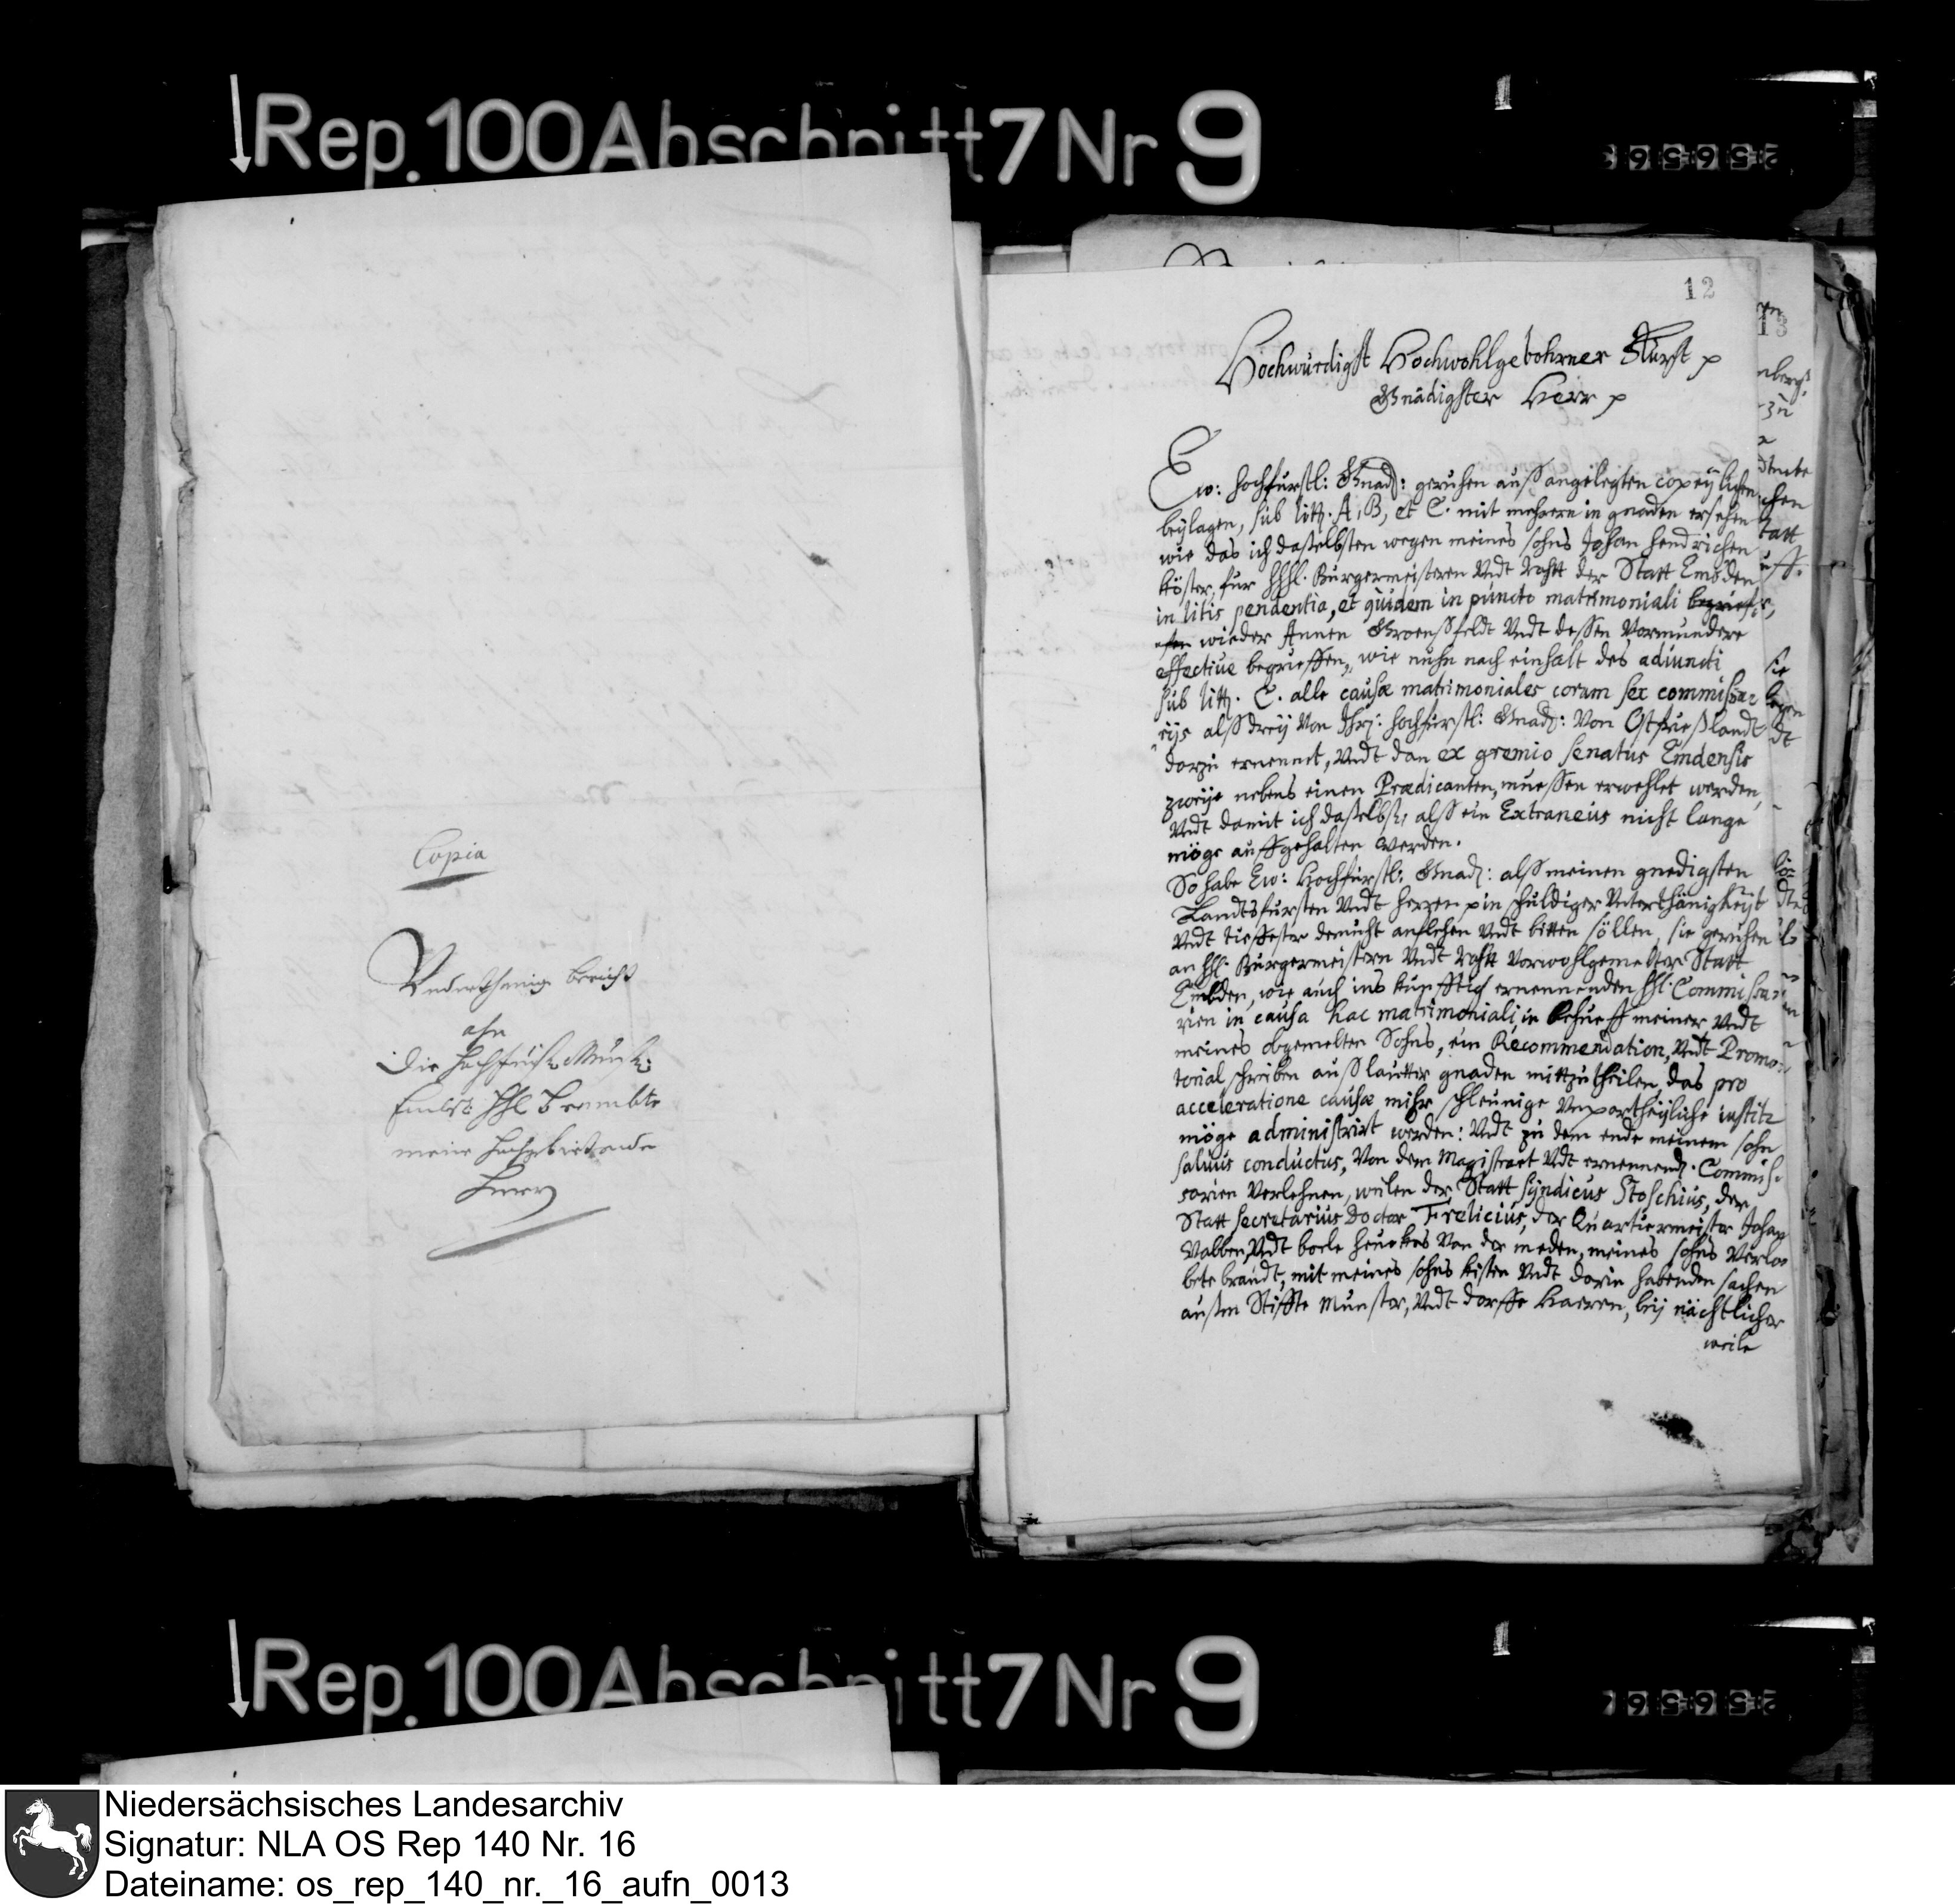 Rep. 100 Abschnitt 7 Nr 9
Copia
Underthenige bericht
ahn
Die Hochfürstl. Münst:
meine hochgebietende
Herrn
12
Hochwürdigst Hochwohlgebohrner Fürst p
Gnädigster Herr p
Ew: hochfürstl: Gnad: geruhen auß angelegten copeÿlichen
beÿlagen, sub litt. A, B, et C. mit mehrern in gnaden ersehen
wie das ich daselbsten wegen meines sohns Johan Hendrichen
Köster, für hhhl. Bürgermeisteren Undt Rahtt der Statt Embden
in litis pendentia, et quidem in puncto matrimoniali
wieder Annen Groenßfeldt Undt dessen Vormundere
effective begrueffen, wie nuhn nach einhalt des adiuncti
sub litt. C. alle causæ matrimoniales coram sex commissa-
rijs alß dreÿ Von Ihr: hochfürstl: Gnad: Von Ostfrießlandt
darzu ernennet, Undt dan ex gremio senatus Emdensis
zweÿe nebens einen Prædicanten, muessen erwehlet werden,
Undt damit ich daselbst, alß ein Extraneus nicht lange
möge auffgehalten werden.
So habe Ew: Hochfürstl: Gnad: alß meinen gnedigsten
Landtsfürsten Undt herren p in schuldiger Unterthänigkeÿt
Undt tieffester demüht anflehen Undt bitten söllen, sie geruhen
an hhl. Bürgermeistern Undt Rahtt Vorwohlgemelter Statt
Embden, wie auch ins künfftig ernennenden hhl. Commissa-
rien in causa hac matrimoniali, in behueff meiner Undt
meines obgemelten Sohns, ein Recommendation, Undt Promo-
torial schreiben auß lautter gnaden mittzutheilen, das pro
acceleratione causæ mihr schleunige Unpartheÿliche iustitz
möge administrirt werden: Undt zu dem ende meinem sohn
salvus conductus, Von dem Magistraet Undt ernennend. Commis-
sarien Verlehnen, weilen der Statt Syndicus Stoschius, der
Statt Secretarius Doctor Frelicius, der Quartiermeister Johan
Wabben, Undt boele heuckes Von der meden, meines sohns Verlo-
bete brandt, mit meines sohns kisten Undt darin habenden sachen
außm Stiffte Munster, Undt dorffe Haeren, beÿ nächtlicher
weile
Rep. 100 Abschnitt 7 Nr 9
Niedersächsisches Landesarchiv
Signatur: NLA OS Rep 140 Nr. 16
Dateiname: os_rep_140_nr._16_aufn_0013